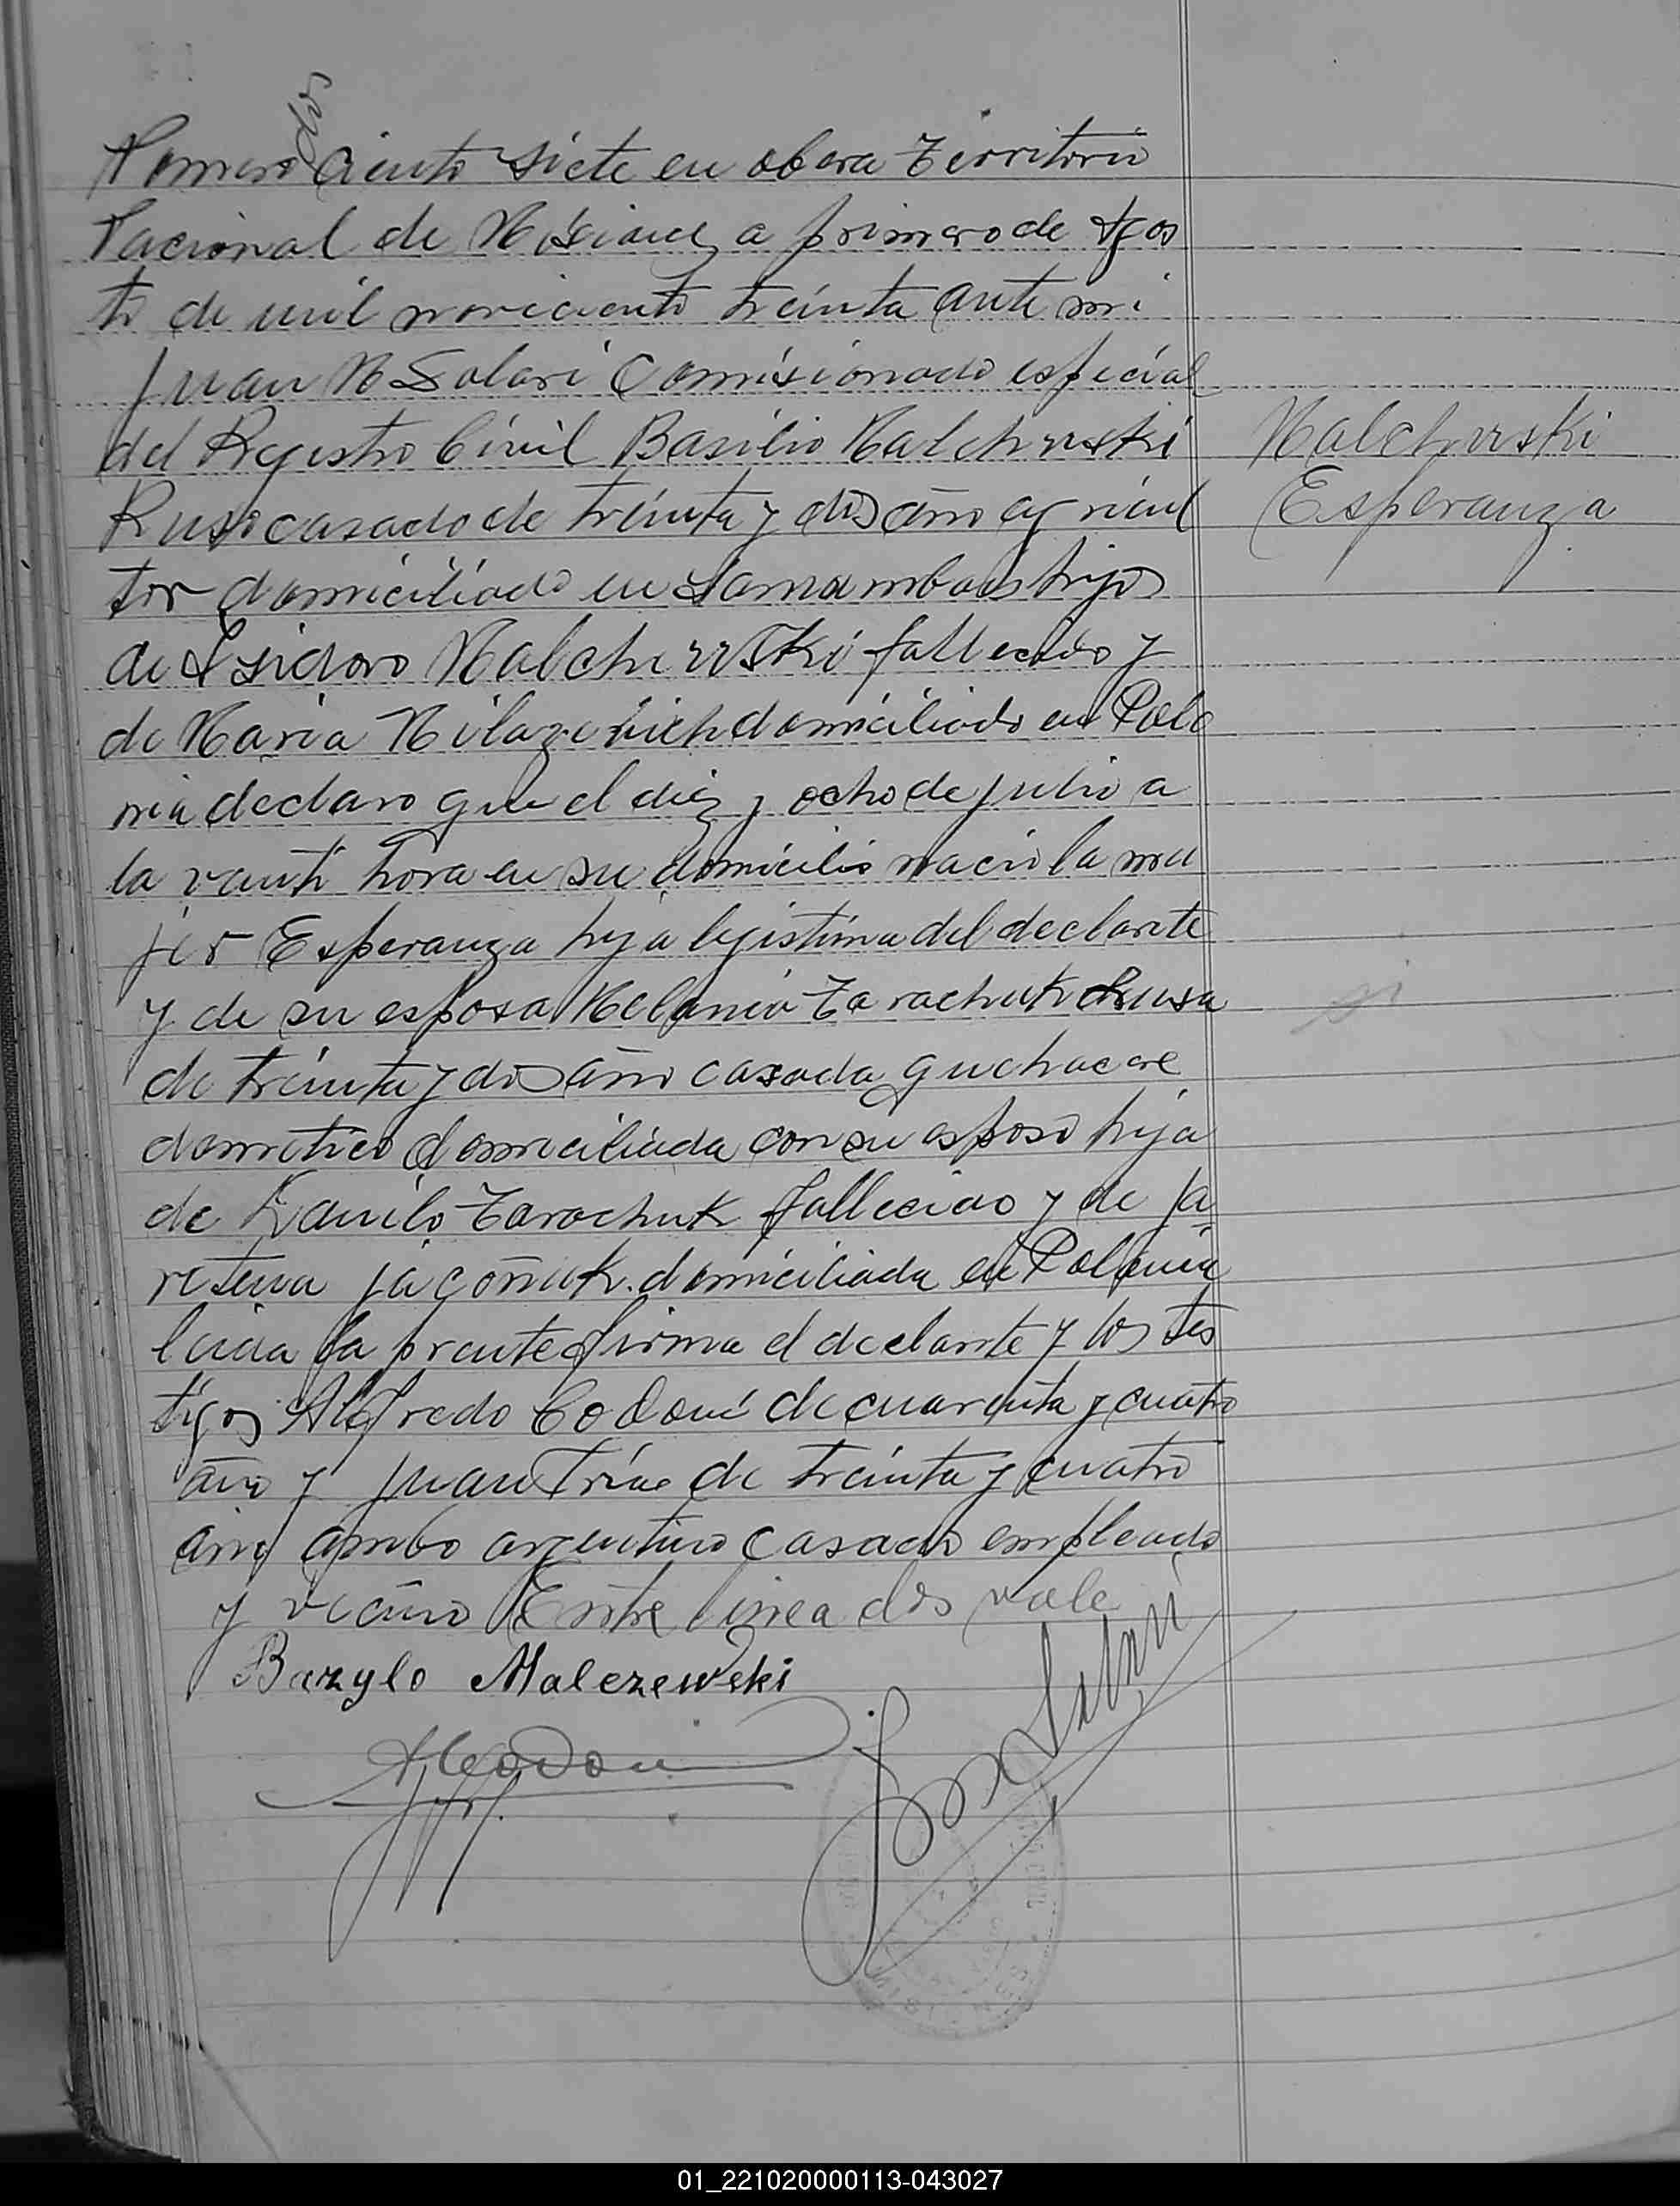 dos
Numero Ciento siete en obera Territorio
Nacional de Misiones a primero de Agos
to de mil noveciento treinta ante mi
Juan M Solari Comisionado especial
del Registro Civil Basilio Malchevski
Malchevski
Ruso casado de treinta y dos año agricul
Esperanza
tor domiciliado en hijo
de Isidoro Malchevski fallecido y
de Maria domiciliado en Polo
nia declaro que el diez y ocho de julio a
la veinti hora en su domicilio nacio la mu
jer Esperanza hija legistima del declarante
y de su esposa Melania Tarachuk Rusa
de treinta y dos año casada quehacere
dometico domiciliada con su esposo hija
de Danilo Tarachuk fallecido y de
domiciliada en Polonia
leida la prente firma el declarante y los tes
tigos Alfredo Codoni de cuarenta y cuatro
año y Juan de treinta y cuatro
año ambo argentino casado empleado
y vecino Entre linea dos vale
Bazylo Malczewski
ACodoni
01_221020000113-043027